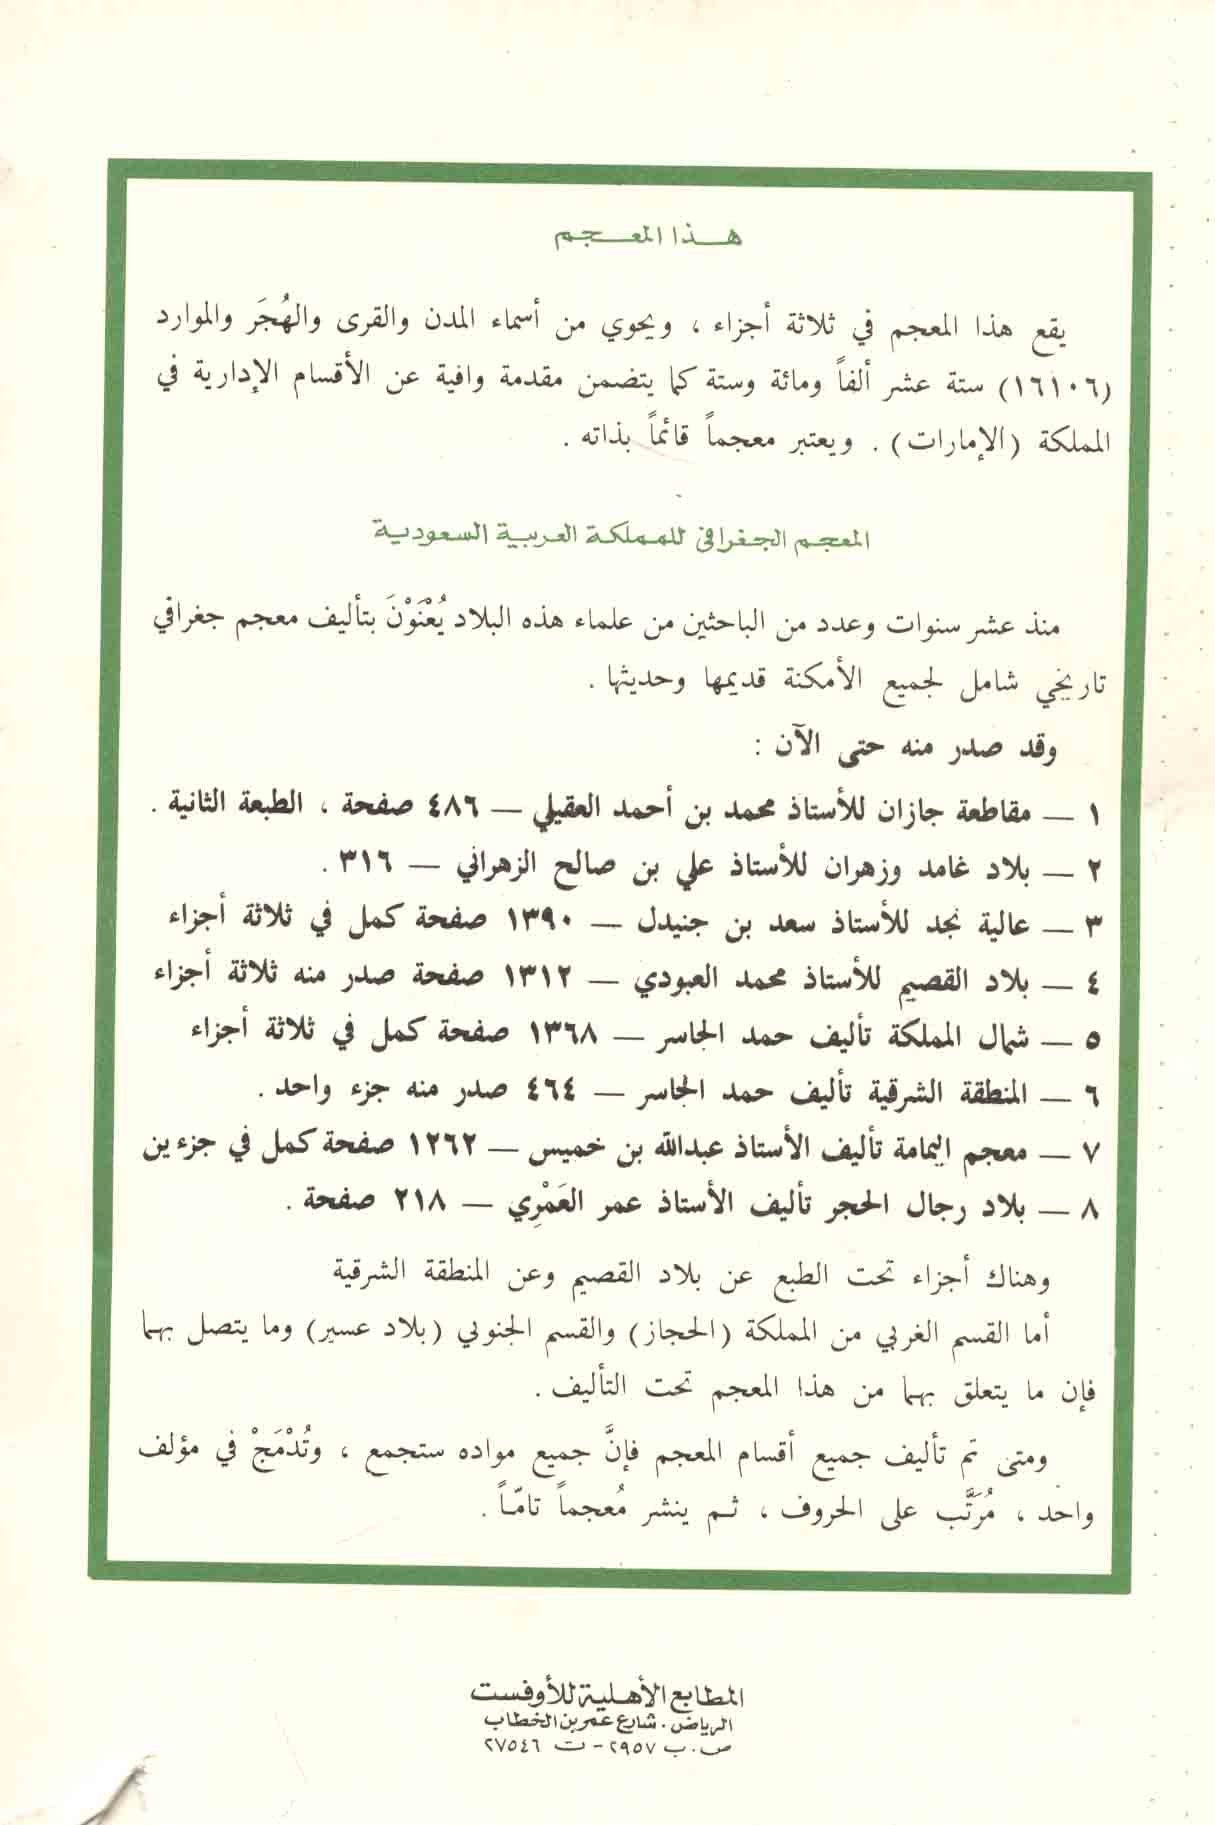 هذا المعجم
يقع هذا المعجم في ثلاثة أجزاء ، ويحوي من أسماء المدن والقرى والهُجَر والموارد
(١٦١٠٦) ستة عشر ألفاً ومائة وستة كما يتضمن مقدمة وافية عن الأقسام الإدارية في
المملكة (الإمارات) . ويعتبر معجماً قائماً بذاته .
المعجم الجغرافي للمملكة العربية السعودية
منذ عشر سنوات وعدد من الباحثين من علماء هذه البلاد يُعْنَوْنَ بتأليف معجم جغرافي
تاريخي شامل لجميع الأمكنة قديمها وحديثها .
وقد صدر منه حتى الآن :
١ — مقاطعة جازان للأستاذ محمد بن أحمد العقيلي — ٤٨٦ صفحة ، الطبعة الثانية .
٢ — بلاد غامد وزهران للأستاذ علي بن صالح الزهراني — ٣١٦ .
٣ — عالية نجد للأستاذ سعد بن جنيدل — ١٣٩٠ صفحة كمل في ثلاثة أجزاء
٤ — بلاد القصيم للأستاذ محمد العبودي — ١٣١٢ صفحة صدر منه ثلاثة أجزاء
٥ — شمال المملكة تأليف حمد الجاسر — ١٣٦٨ صفحة كمل في ثلاثة أجزاء
٦ — المنطقة الشرقية تأليف حمد الجاسر — ٤٦٤ صدر منه جزء واحد .
٧ — معجم اليمامة تأليف الأستاذ عبدالله بن خميس — ١٢٦٢ صفحة كمل في جزءين
٨ — بلاد رجال الحجر تأليف الأستاذ عمر العَمْرِي — ٢١٨ صفحة .
وهناك أجزاء تحت الطبع عن بلاد القصيم وعن المنطقة الشرقية
أما القسم الغربي من المملكة (الحجاز) والقسم الجنوبي (بلاد عسير) وما يتصل بهما
فإن ما يتعلق بهما من هذا المعجم تحت التأليف .
ومتى تم تأليف جميع أقسام المعجم فإنَّ جميع مواده ستجمع ، وتُدْمَجْ في مؤلف
واحد ، مُرَتَّب على الحروف ، ثم ينشر مُعجماً تامّاً .
المطابع الأهلية للأوفست
الرياض . شارع عمر بن الخطاب
ص . ب ٢٩٥٧ - ت ٢٧٥٤٦